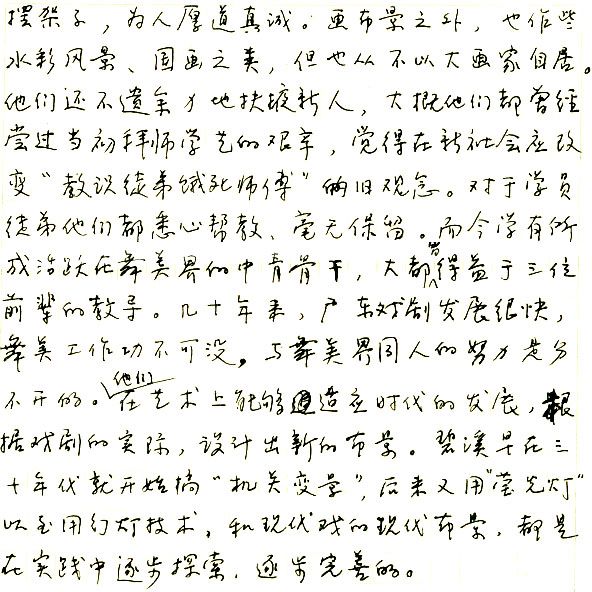 摆架子，为人厚道真诚。画布景之外，也作些
水彩风景、国画之类，但也从不以大画家自居。
他们还不遗余力地扶掖新人，大概他们都曾经
尝过当初拜师学艺的艰辛，觉得在新社会应改
变“教识徒弟饿死师傅”的旧观念。对于学员
徒弟他们都悉心帮教、毫无保留。而今学有所
成活跃在舞美界的中青骨干，大都曾得益于三位
前辈的教导。几十年来，广东戏剧发展很快，
舞美工作功不可没，与舞美界同人的努力是分
不开的。他们在艺术上能够适应时代的发展，根
据戏剧的实际，设计出新的布景。碧溪早在三
十年代就开始搞“机关变景”，后来又用“莹光灯”
以至用幻灯技术，和现代戏的现代布景，都是
在实践中逐步探索，逐步完善的。